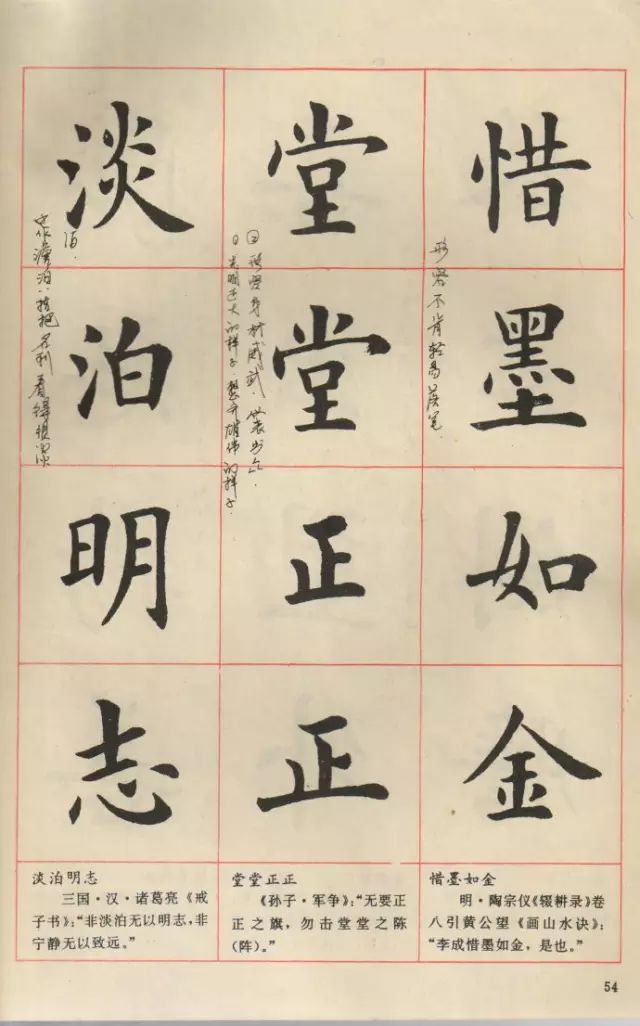 惜墨如金
堂堂正正
淡泊明志
形容不肯轻易落笔
②形容身材威武
①光明正大的样子
的样子
泊
指把名利看得很淡
淡泊明志
三国·汉·诸葛亮《戒
子书》:“非淡泊无以明志,非
宁静无以致远。”
堂堂正正
《孙子·军争》:“无要正
正之旗,勿击堂堂之陈
(阵)。”
惜墨如金
明·陶宗仪《辍耕录》卷
八引黄公望《画山水诀》:
“李成惜墨如金,是也。”
54